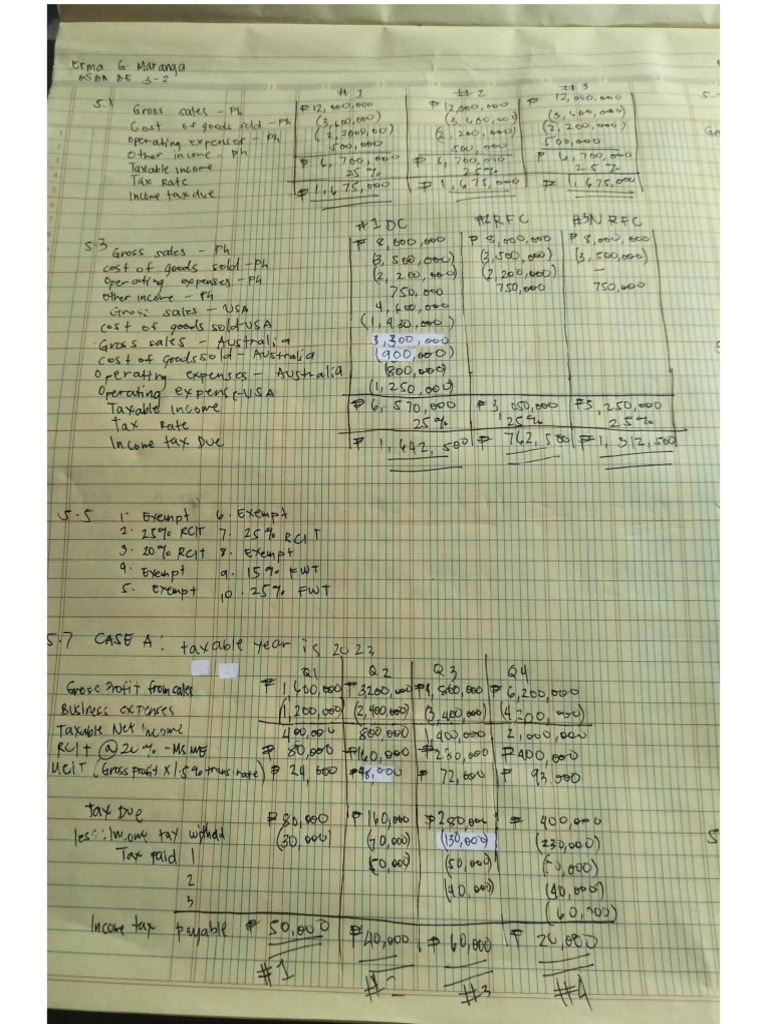 Erma G. Maranga
BSBA BE 3-2
#1 #2 #3
5.1 Gross sales - Ph ₱12,000,000 ₱12,000,000 ₱12,000,000
Cost of goods sold - Ph (3,600,000) (3,600,000) (3,600,000)
Operating expenses - Ph (2,2000,00) (2,200,000) (2,200,000)
Other income - ph 500,000 500,000 500,000
Taxable income ₱6,700,000 ₱6,700,000 ₱6,700,000
Tax Rate 25% 25% 25%
Income tax due ₱1,675,000 ₱1,675,000 ₱1,675,000
#1 DC #2 RFC #3 NRFC
5.3 Gross sales - Ph ₱8,000,000 ₱8,000,000 ₱8,000,000
cost of goods sold - Ph (3,500,000) (3,500,000) (3,500,000)
Operating expenses - Ph (2,200,000) (2,200,000) -
Other income - Ph 750,000 750,000 750,000
Gross sales - USA 4,600,000
cost of goods sold - USA
Gross sales - Australia 3,300,000
cost of goods sold - Australia (900,000)
Operating expenses - Australia (800,000)
Operating expense - USA (1,250,000)
Taxable Income ₱6,570,000 ₱3,050,000 ₱5,250,000
Tax Rate 25% 25% 25%
Income tax Due ₱1,642,500 ₱762,500 ₱1,312,500
5.5 1. Exempt 6. Exempt
2. 25% RCIT 7. 25% RCIT
3. 20% RCIT 8. Exempt
4. Exempt 9. 15% FWT
5. Exempt 10. 25% FWT
5.7 CASE A: taxable year is 2023
Q1 Q2 Q3 Q4
Gross Profit from sales ₱1,600,000 ₱3200,000 ₱4,800,000 ₱6,200,000
Business expenses (1,200,000) (2,400,000) (3,400,000) (4,200,000)
Taxable Net Income 400,000 800,000 1,400,000 2,000,000
RCIT @ 20% - MSME ₱80,000 ₱160,000 ₱230,000 ₱400,000
UCIT (Gross profit x 1.5% trans. rate) ₱24,000 ₱48,000 ₱72,000 ₱93.000
Tax Due ₱80,000 ₱160,000 ₱280,000 ₱400,000
less: Income tax withheld (30,000) (70,000) (130,000) (230,000)
Tax paid 1 (50,000) (50,000) (50,000)
2 (40,000) (40,000)
3 (60,000)
Income tax payable ₱50,000 ₱40,000 ₱60,000 ₱20,000
#1 #2 #3 #4